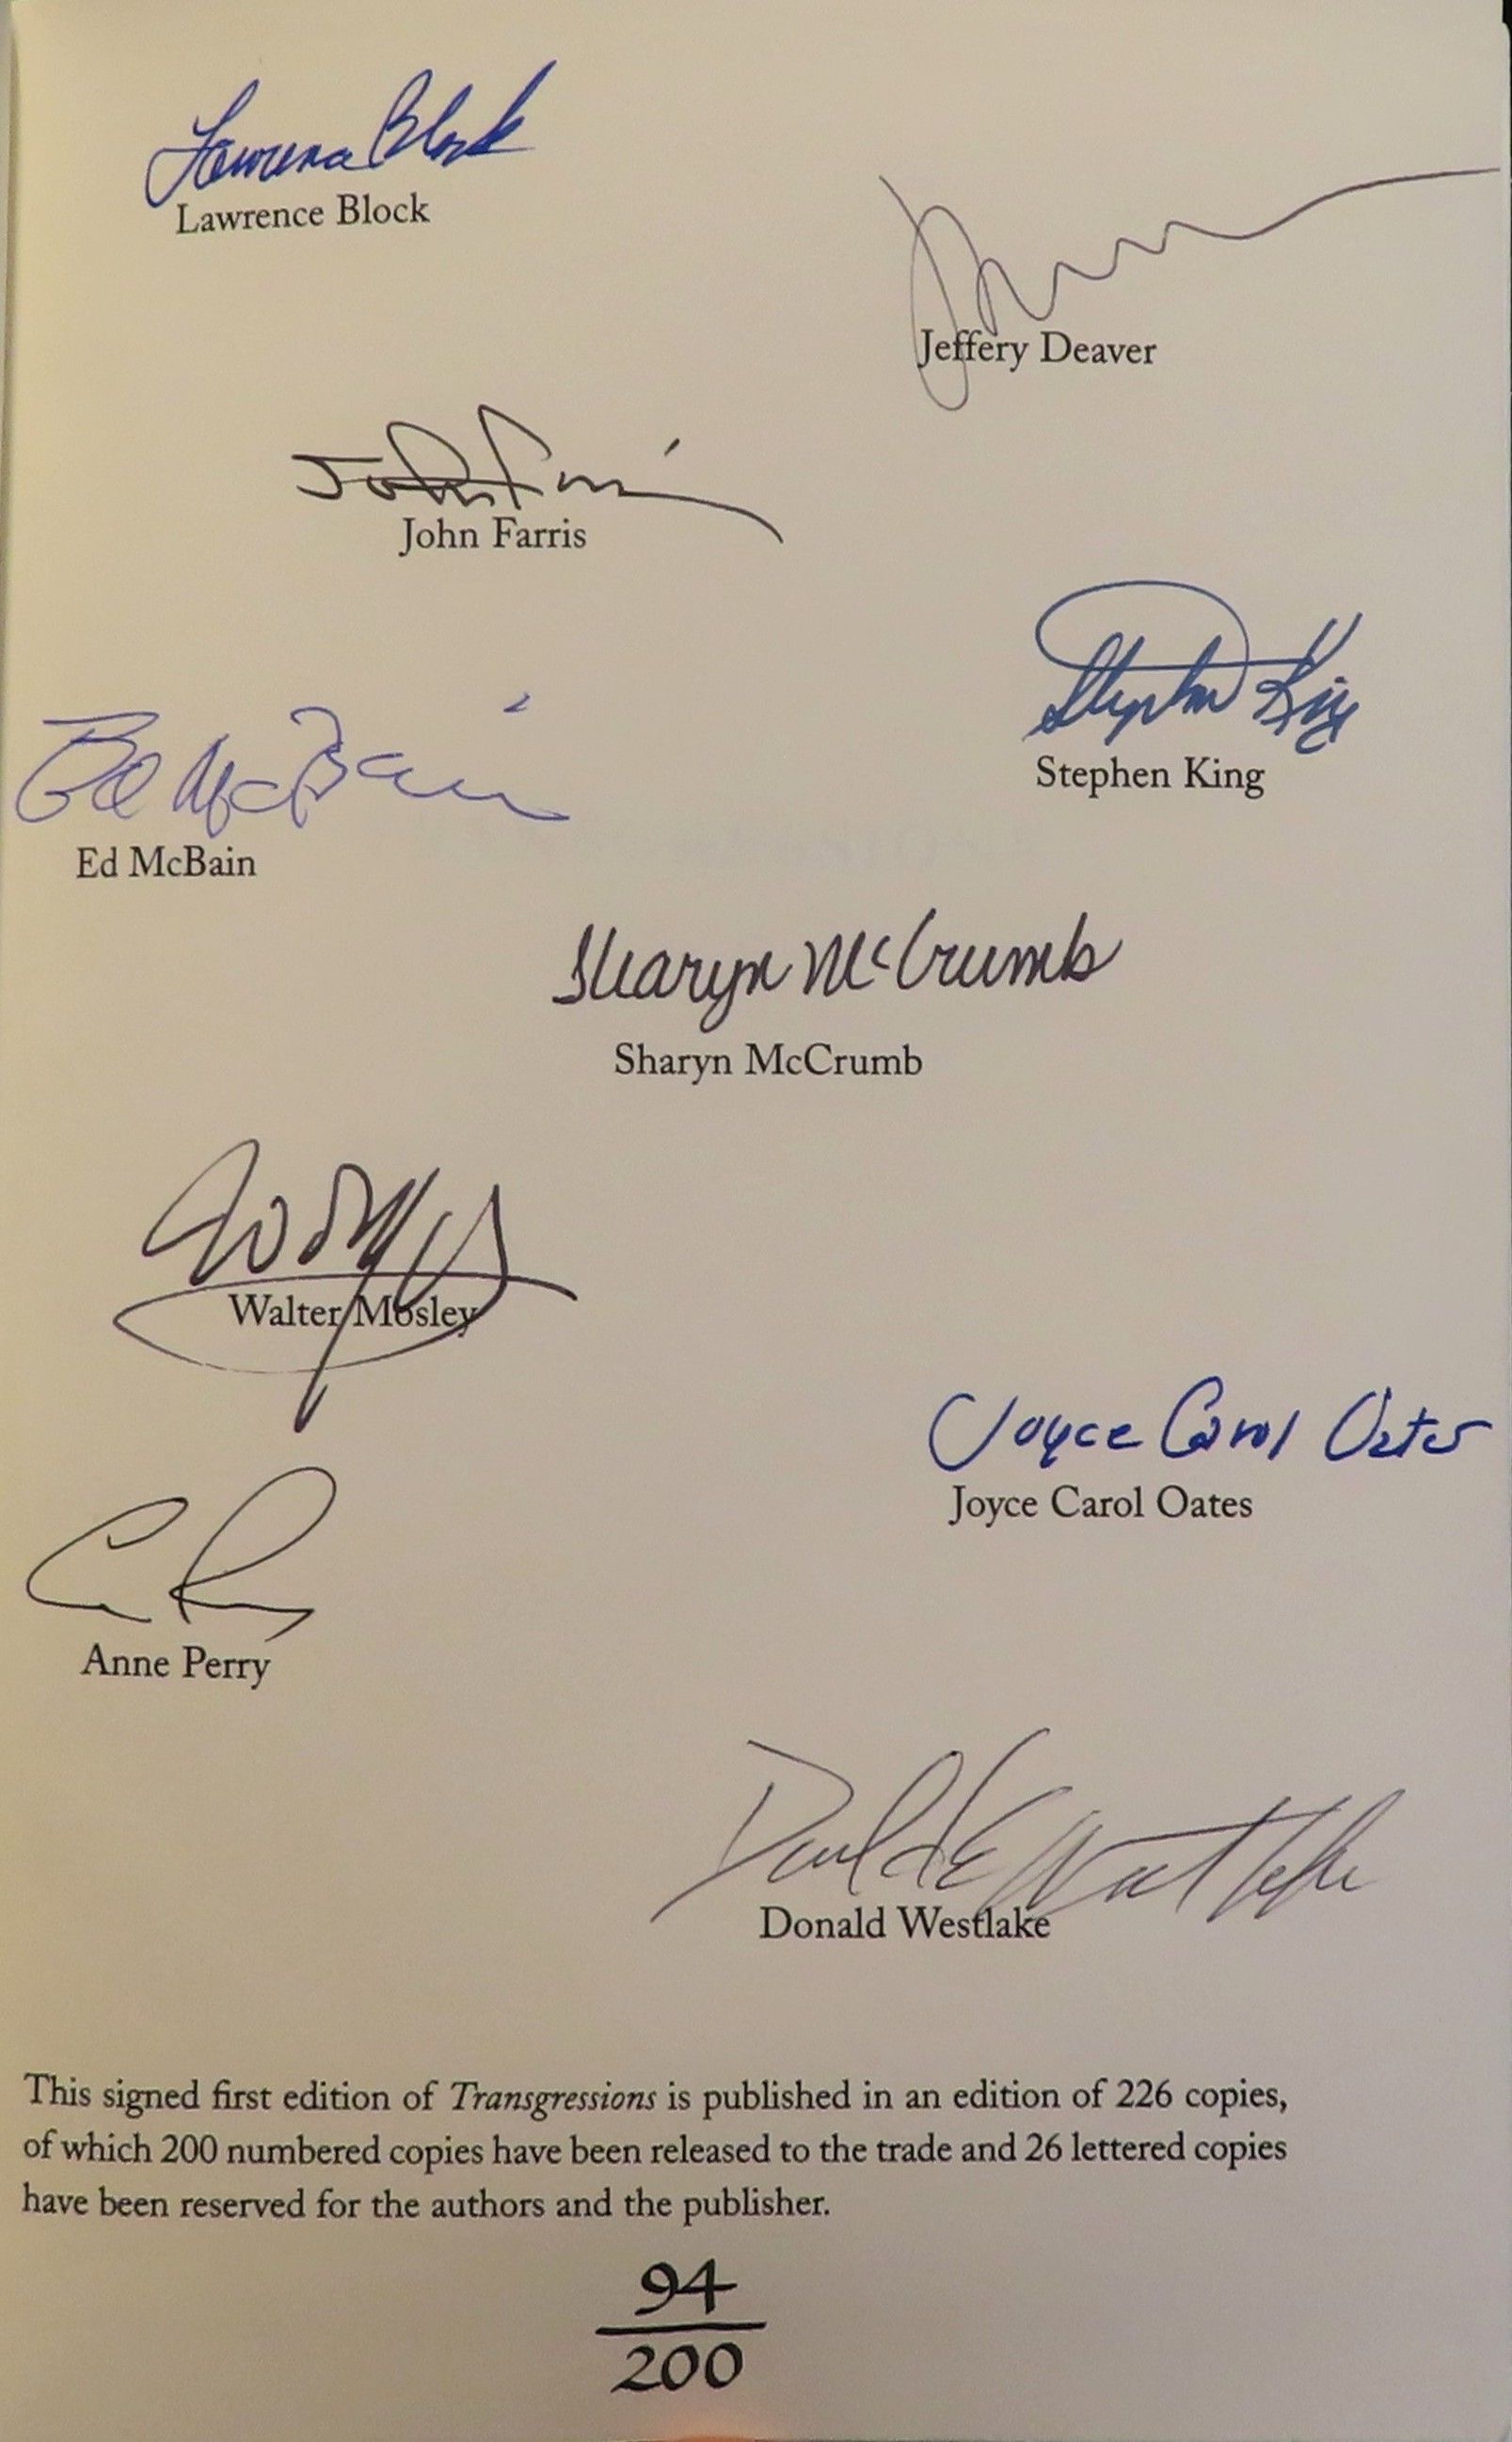 Lawrence Block
Lawrence Block
Jeffery Deaver
John Farris
John Farris
Stephen King
Stephen King
Ed McBain
Ed McBain
Sharyn McCrumb
Sharyn McCrumb
Walter Mosley
Joyce Carol Oates
Joyce Carol Oates
Anne Perry
Donald E Westlake
Donald Westlake
This signed first edition of Transgressions is published in an edition of 226 copies,
of which 200 numbered copies have been released to the trade and 26 lettered copies
have been reserved for the authors and the publisher.
94
200